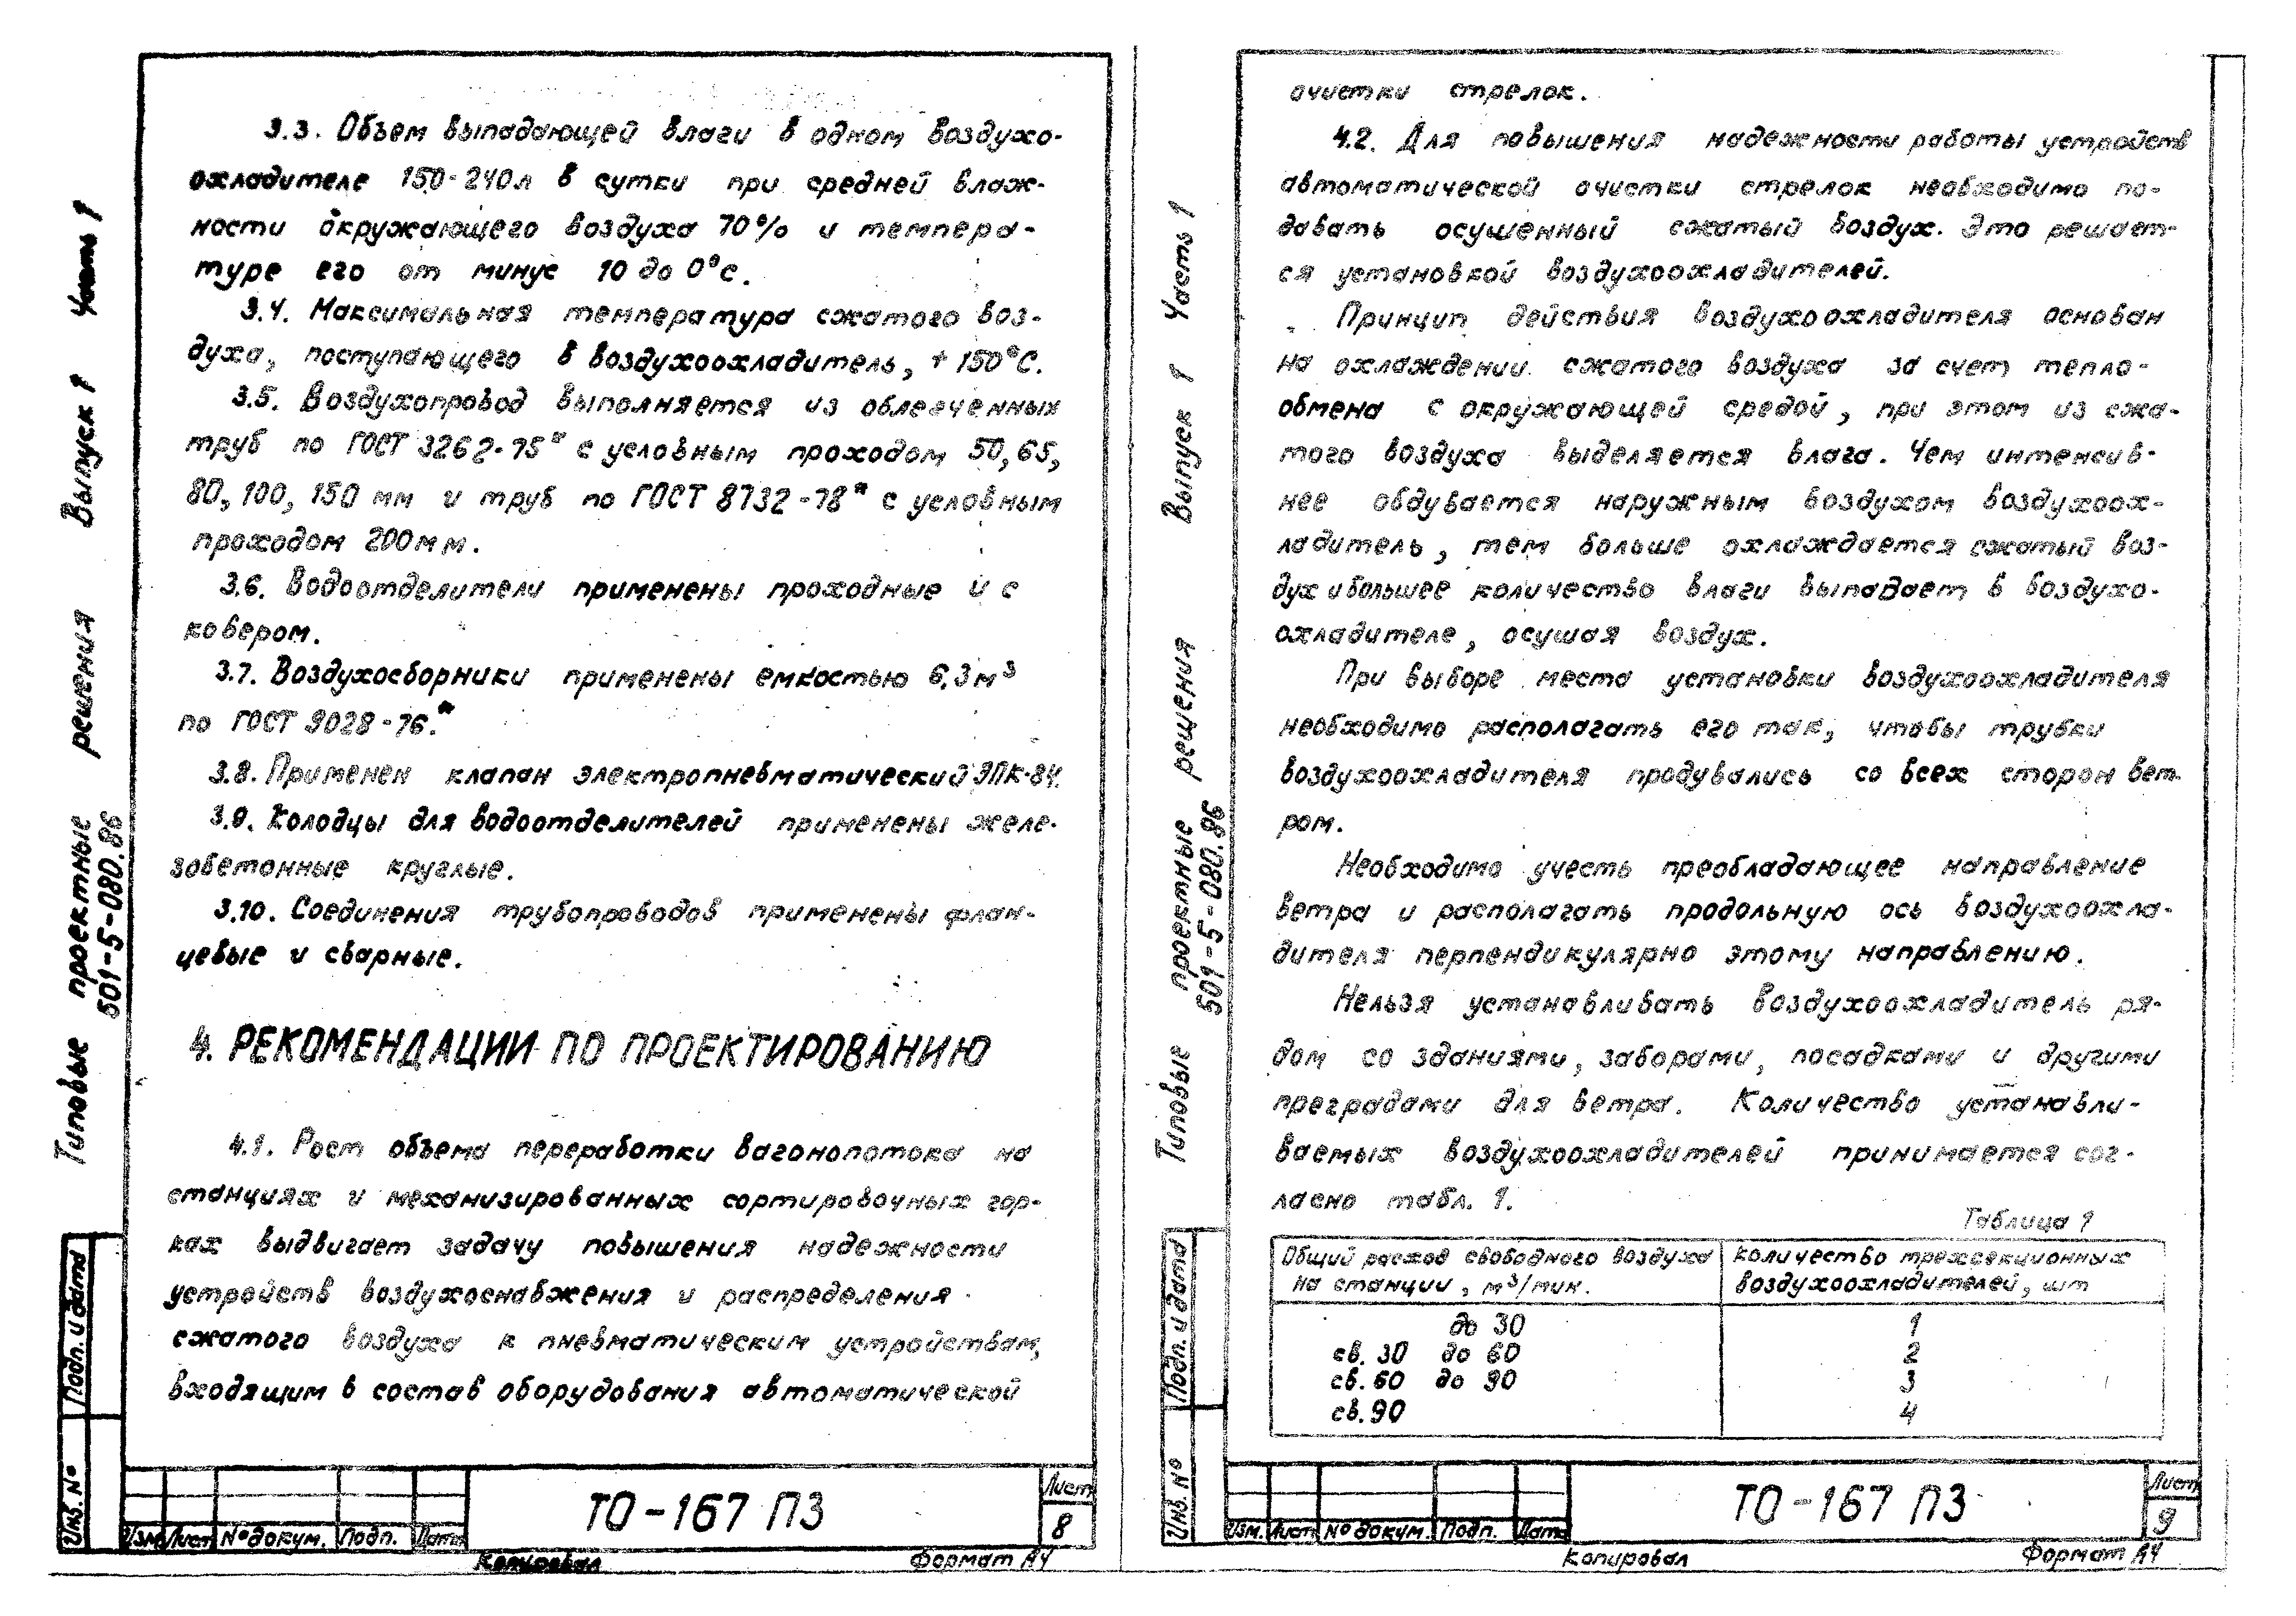 3.3. Объем выпадающей влаги в одном воздухо-
охладителе 150-240л в сутки при средней влаж-
ности окружающего воздуха 70% и темпера-
туре его от минус 10 до 0°с.
3.4. Максимальная температура сжатого воз-
духа, поступающего в воздухоохладитель, +150°С.
3.5. Воздухопровод выполняется из облегченных
труб по ГОСТ 3262-75* с условным проходом 50, 65,
80, 100, 150 мм и труб по ГОСТ 8732-78* с условным
проходом 200мм.
3.6. Водоотделители применены проходные и с
ковером.
3.7. Воздухосборники применены емкостью 6,3м³
по ГОСТ 9028-76.*
3.8. Применен клапан электропневматический ЭПК-84.
3.9. Колодцы для водоотделителей применены желе-
зобетонные круглые.
3.10. Соединения трубопроводов применены флан-
цевые и сварные.
4. РЕКОМЕНДАЦИИ ПО ПРОЕКТИРОВАНИЮ
4.1. Рост объема переработки вагонопотока на
станциях и механизированных сортировочных гор-
ках выдвигает задачу повышения надежности
устройств воздухоснабжения и распределения
сжатого воздуха к пневматическим устройствам,
входящим в состав оборудования автоматической
Типовые проектные решения Выпуск 1 Часть 1
501-5-080.86
Подп. и дата
Инв. №
Изм. Лист № докум. Подп. Дата
ТО-167 ПЗ
Лист
8
Копировал Формат А4
очистки стрелок.
4.2. Для повышения надежности работы устройств
автоматической очистки стрелок необходимо по-
давать осушенный сжатый воздух. Это решает-
ся установкой воздухоохладителей.
Принцип действия воздухоохладителя основан
на охлаждении сжатого воздуха за счет тепло-
обмена с окружающей средой, при этом из сжа-
того воздуха выделяется влага. Чем интенсив-
нее обдувается наружным воздухом воздухоох-
ладитель, тем больше охлаждается сжатый воз-
дух и большее количество влаги выпадает в воздухо-
охладителе, осушая воздух.
При выборе места установки воздухоохладителя
необходимо располагать его так, чтобы трубки
воздухоохладителя продувались со всех сторон вет-
ром.
Необходимо учесть преобладающее направление
ветра и располагать продольную ось воздухоохла-
дителя перпендикулярно этому направлению.
Нельзя устанавливать воздухоохладитель ря-
дом со зданиями, заборами, посадками и другими
преградами для ветра. Количество устанавли-
ваемых воздухоохладителей принимается сог-
ласно табл. 1.
Таблица 1
Общий расход свободного воздуха на станции, м³/мин. | Количество трехсекционных воздухоохладителей, шт
до 30 1
св. 30 до 60 2
св. 60 до 90 3
св. 90 4
Типовые проектные решения Выпуск 1 Часть 1
501-5-080.86
Подп. и дата
Инв. №
Изм. Лист № докум. Подп. Дата
ТО-167 ПЗ
Лист
9
Копировал Формат А4